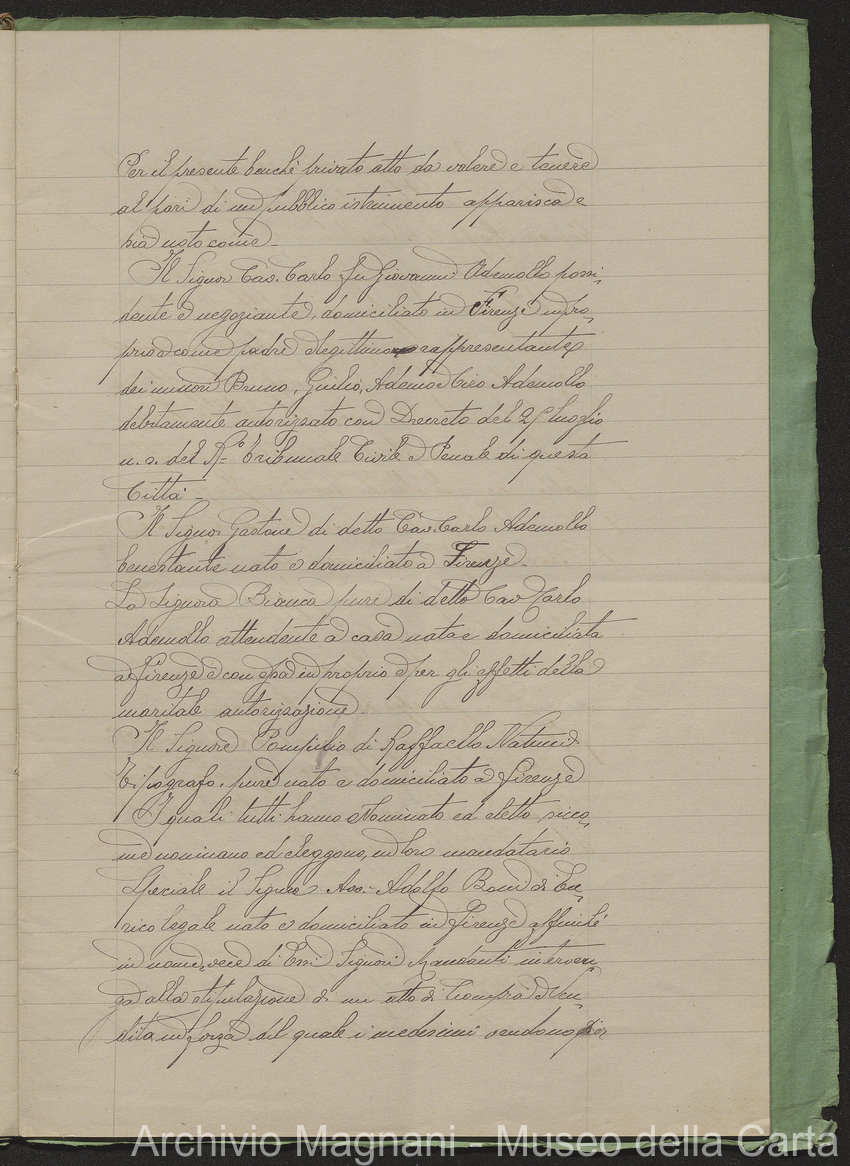 Per il presente benché privato atto da valere e tenere
al pari di un pubblico istrumento apparisca e
sia noto come -
Il Signor Cav. Carlo fu Giovanni Ademollo possi-
dente e negoziante, domiciliato in Firenze in pro-
prio e come padre e legittimo rappresentante
dei minori Bruno, Giulio, Ademo e Ciro Ademollo
debitamente autorizzato con Decreto del 25 luglio
u. s. del R.º Tribunale Civile e Penale di questa
Città -
Il Signor Gastone di detto Cav. Carlo Ademollo
benestante nato e domiciliato a Firenze -
La Signora Bianca pure di detto Cav Carlo
Ademollo attendente a casa nata e domiciliata
a Firenze e con essa in proprio e per gli effetti della
maritale autorizzazione -
Il Signore Pompilio di Raffaello Natucci
tipografo, pure nato e domiciliato a Firenze
I quali tutti hanno nominato ed eletto, sicco-
me nominano ed eleggono, in loro mandatario
Speciale il Signor Avv. Adolfo Bond di En-
rico legale nato e domiciliato in Firenze affinché
in nome e vece di Essi Signori Mandanti interven-
ga alla stipulazione di un atto di Compra e Ven-
dita in forza del quale i medesimi vendono per
Archivio Magnani - Museo della Carta